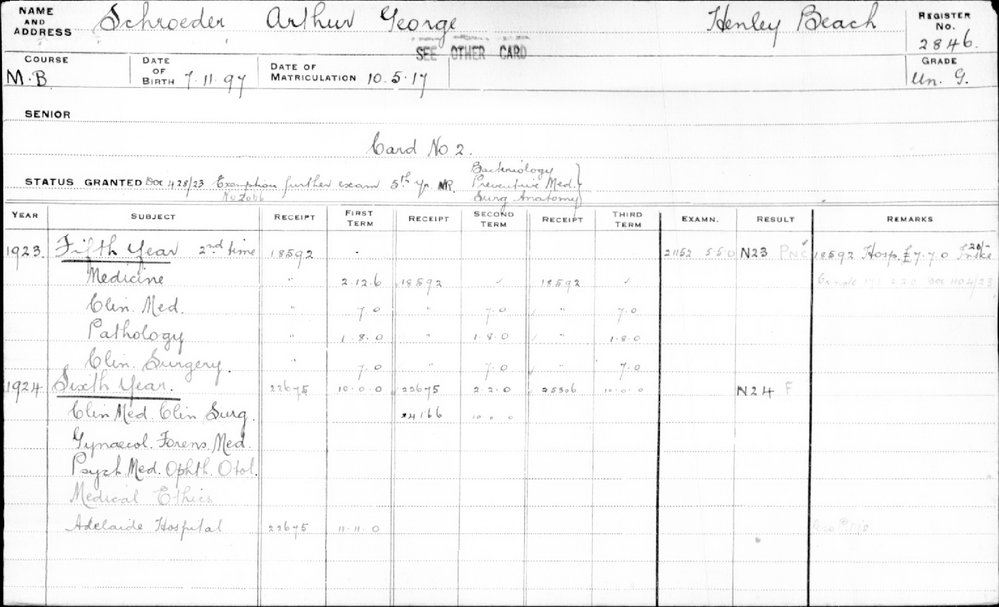 NAME AND ADDRESS Schroeder Arthur George Henley Beach REGISTER No. 2846.
SEE OTHER CARD
COURSE M.B. DATE OF BIRTH 7.11.97 DATE OF MATRICULATION 10.5.17 GRADE Un. G.
SENIOR
Card No 2.
STATUS GRANTED Doc 428/23 Exemption further exam 5th yr. Bacteriology
Preventive Med.
Surg Anatomy
YEAR SUBJECT RECEIPT FIRST TERM RECEIPT SECOND TERM RECEIPT THIRD TERM EXAMN. RESULT REMARKS
1923 Fifth Year 2nd time 18592 21152 5.5.0 N23 18592 Hosp. £7.7.0
Medicine " 2.12.6 18592 " 18592 "
Clin. Med. " 7.0 " 7.0 " 7.0
Pathology " 1.8.0 " 1.8.0 " 1.8.0
Clin. Surgery. " 7.0 " 7.0 " 7.0
1924 Sixth Year. 22675 10.0.0 22675 2.2.0 25306 10.0.0 N24 F
Clin Med. Clin Surg. 24166 10.0.0
Gynaecol. Forens. Med.
Psych. Med. Ophth. Otol.
Medical Ethics
Adelaide Hospital 22675 11.11.0